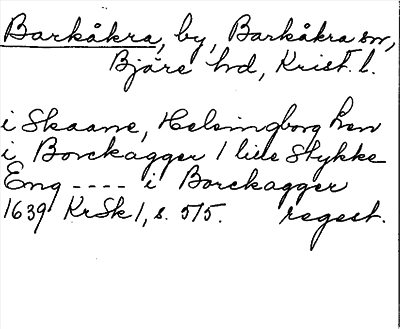 Barkåkra, by, Barkåkra sn,
Bjäre hd, Krist. l.
i Skaane, Helsingborg Len
i Borckagger 1 lide Stykke
Eng ---- i Borckagger
1639 KrSk 1, s. 515. regest.